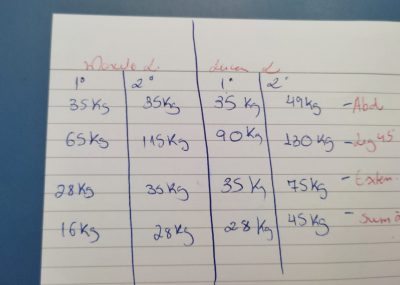 Lucca L.
1º 2º 1º 2º
35Kg 35Kg 35Kg 49Kg - Abd
65Kg 115Kg 90Kg 130Kg - Leg 45
28Kg 35Kg 35Kg 75Kg - Exten
16Kg 28Kg 28Kg 45Kg - Sumô